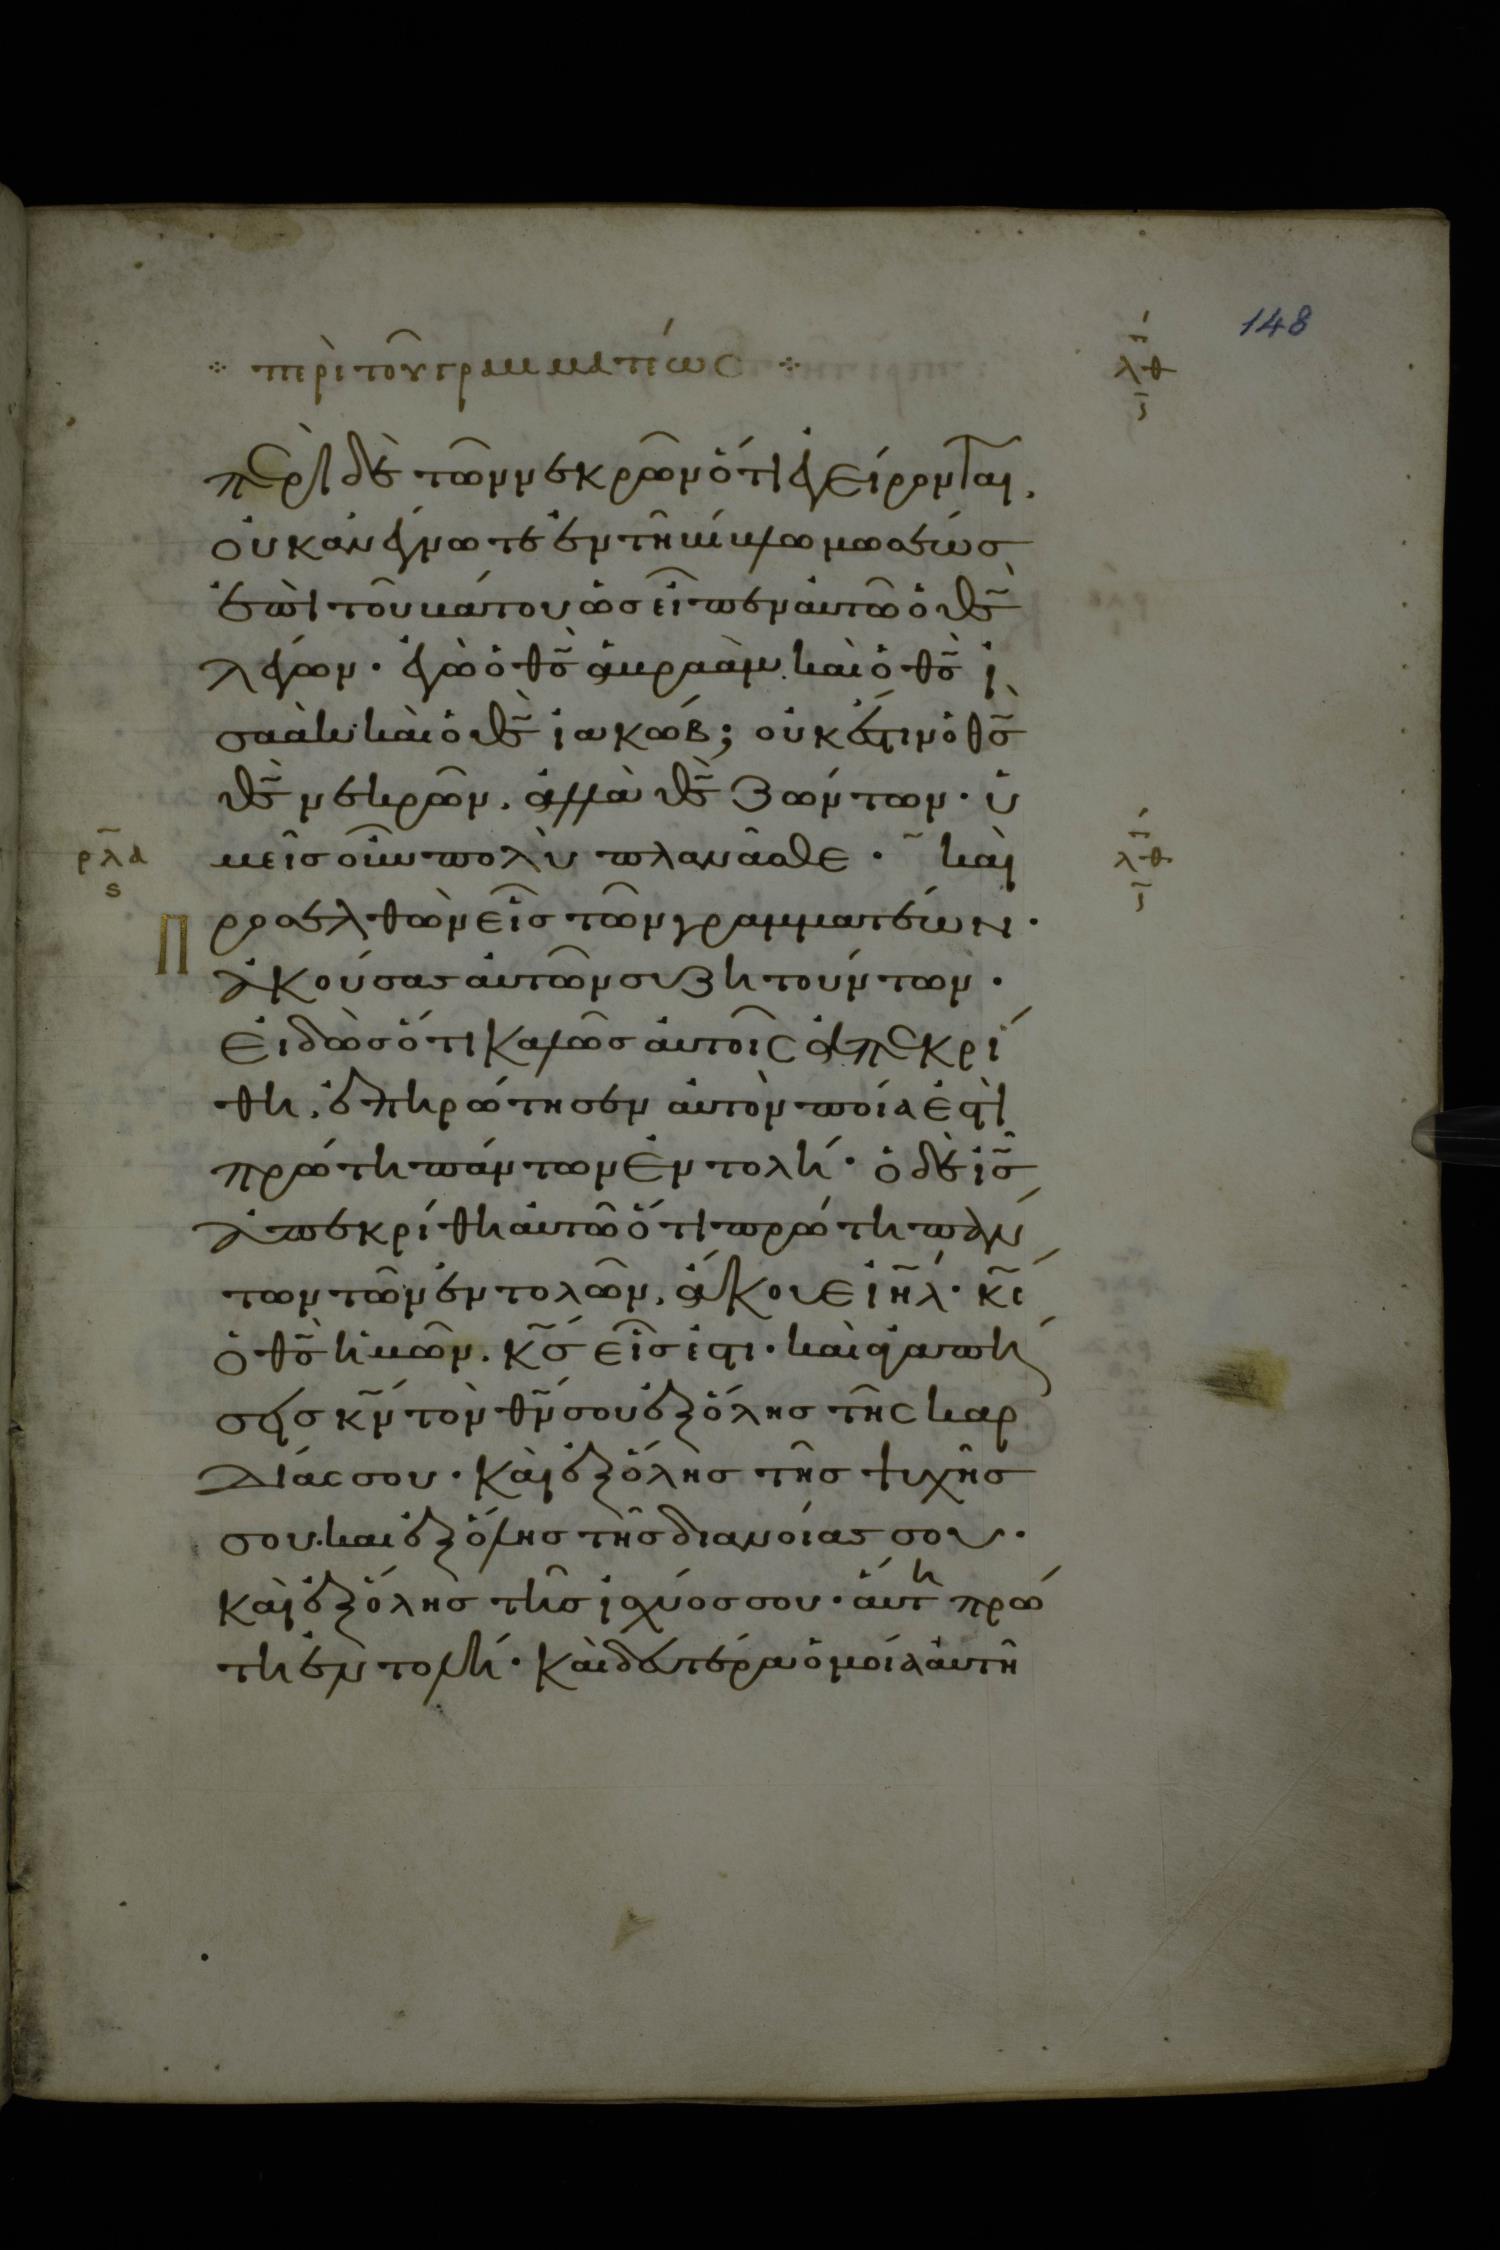 περὶ τοῦ γραμματέως
148
λθ
περὶ δὲ τῶν νεκρῶν ὅτι ἐγείρονται.
οὐκ ἀνέγνωτε ἐν τῆ βίβλω μωσέως
ἐπὶ τοῦ βάτου ὡς εἶπεν αὐτῶ ὁ θ̅ς̅
λέγων· ἐγὼ ὁ θ̅ς̅ ἀβραὰμ. καὶ ὁ θ̅ς̅ ἰ
σαὰκ καὶ ὁ θ̅ς̅ ἰακώβ; οὐκ ἔστιν ὁ θ̅ς̅
θ̅ς̅ νεκρῶν. ἀλλὰ θ̅ς̅ ζώντων· ὑ
ρλα
ς
μεῖς οὖν πολὺ πλανᾶσθε· καὶ
λθ
Προσελθὼν εἷς τῶν γραμματέων·
ἀκούσας αὐτῶν συζητούντων·
εἰδὼς ὅτι καλῶς αὐτοῖς ἀπεκρί
θη, ἐπηρώτησεν αὐτὸν ποία ἐστὶ
πρώτη πάντων ἐντολή· ὁ δὲ ι̅ς̅
ἀπεκρίθη αὐτῶ ὅτι πρώτη πάν
των τῶν ἐντολῶν, ἄκουε ι̅η̅λ̅· κ̅ς̅
ὁ θ̅ς̅ ἡμῶν. κ̅ς̅ εἷς ἐστι· καὶ ἀγαπή
σεις κ̅ν̅ τὸν θ̅ν̅ σου ἐξ ὅλης τῆς καρ
δίας σου· καὶ ἐξ ὅλης τῆς ψυχῆς
σου. καὶ ἐξ ὅλης τῆς διανοίας σου·
καὶ ἐξ ὅλης τῆς ἰσχύος σου· αὕτη πρώ
τη ἐντολή· καὶ δευτέρα ὁμοία αὐτῆ